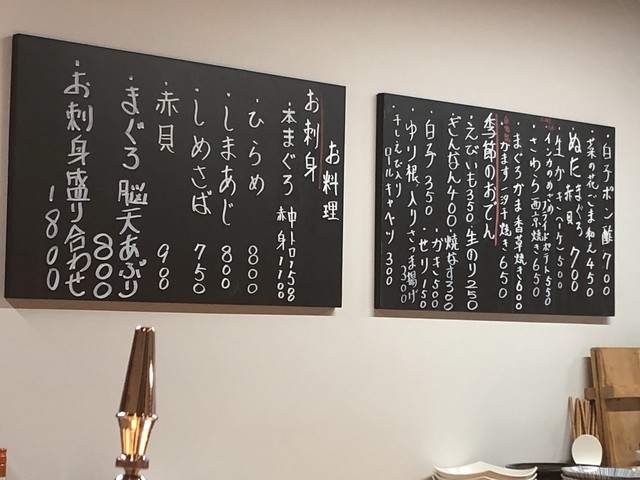 お料理
お刺身
・本まぐろ 中トロ1580 赤身1100
・ひらめ 800
・しまあじ 800
・しめさば 750
・赤貝 900
・まぐろ脳天あぶり 800
・お刺身盛り合わせ 1800
・白子ポン酢 700
・菜の花ごま和え 450
・ぬた まぐろ 赤貝 700
・生かき 1ヶ 500
・インカのめざめ フライドポテト 550
・さわら西京焼き 650
・まぐろかま香草焼き 600
かます一汐干焼き 650
季節のおでん
・えびいも 350
・生のり 250
・ぎんなん 400
・焼なす 300
・かき 500
・白子 350
・せり 150
・ゆり根入りさつま揚げ 300
・干しえび入りロールキャベツ 300